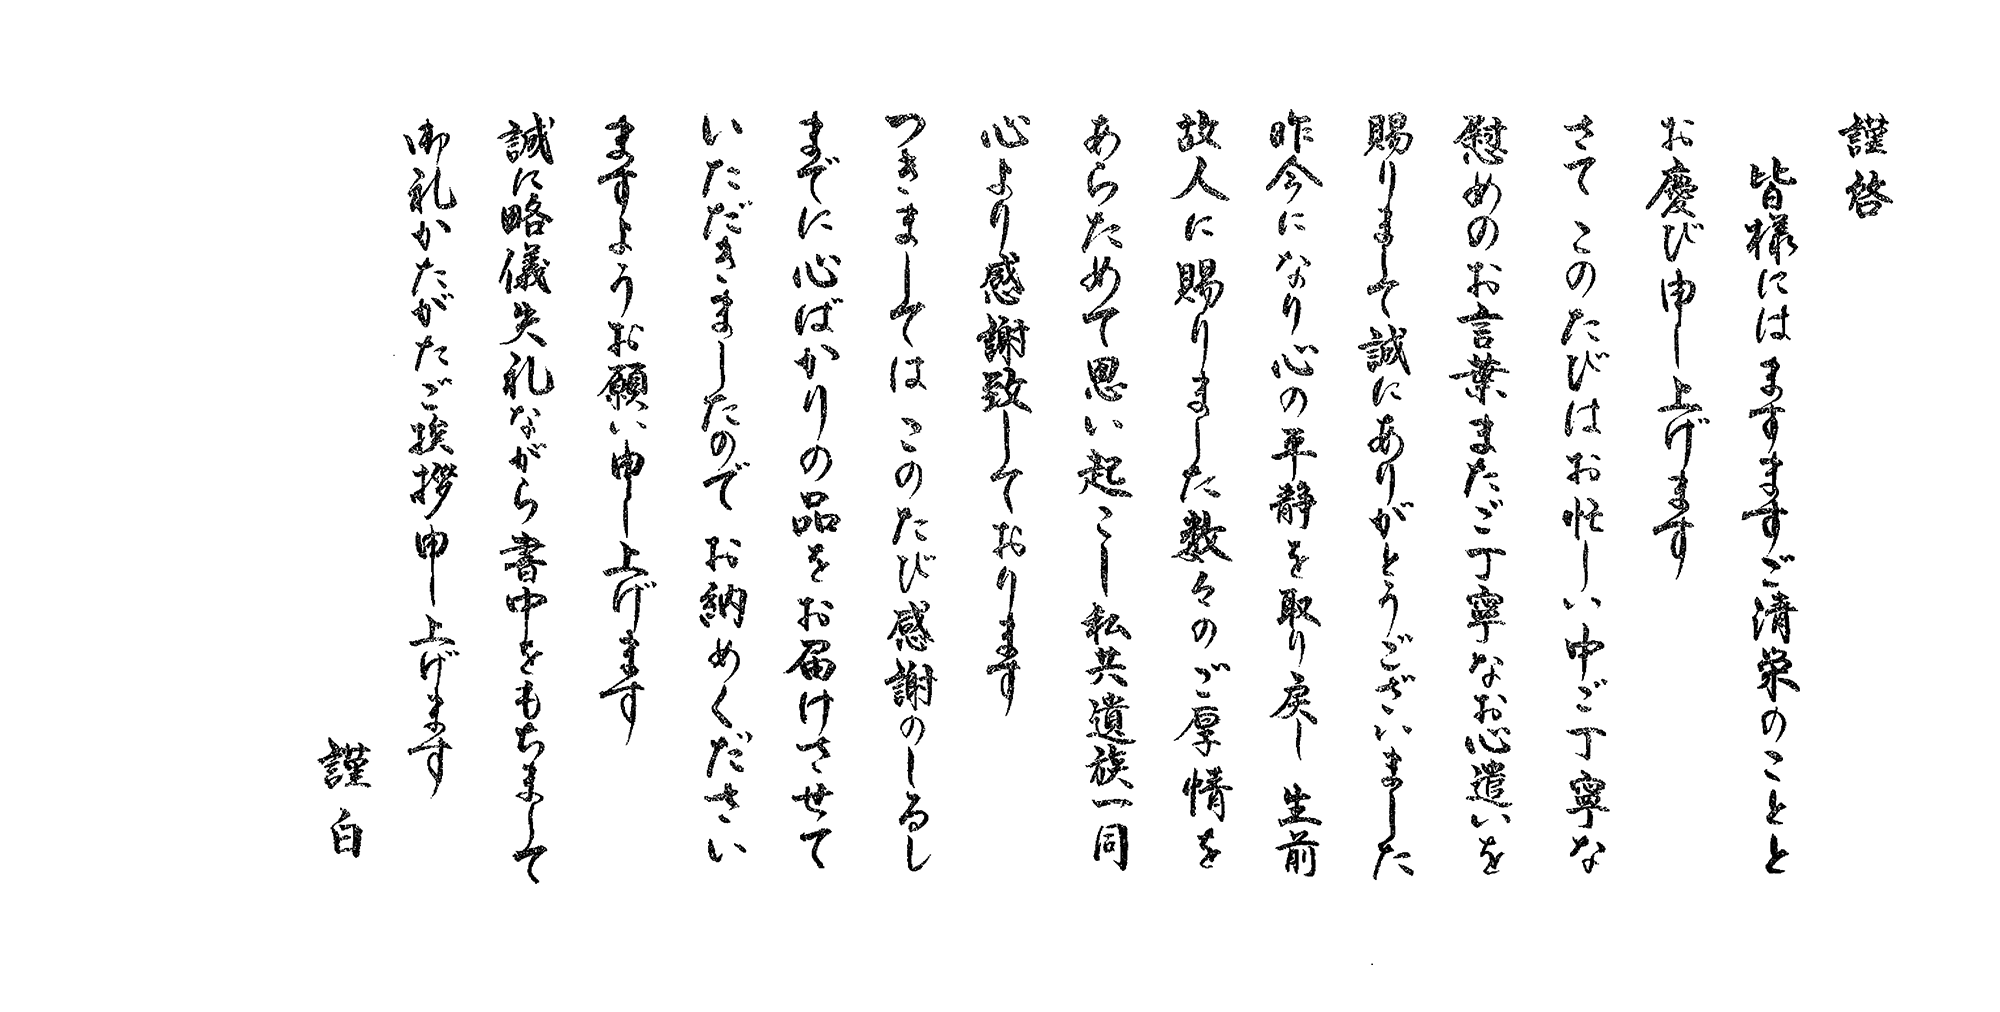 謹啓
皆様にはますますご清栄のことと
お慶び申し上げます
さて このたびはお忙しい中ご丁寧な
慰めのお言葉またご丁寧なお心遣いを
賜りまして誠にありがとうございました
昨今になり心の平静を取り戻し 生前
故人に賜りました数々のご厚情を
あらためて思い起こし私共遺族一同
心より感謝致しております
つきましては このたび感謝のしるし
までに心ばかりの品をお届けさせて
いただきましたので お納めください
ますようお願い申し上げます
誠に略儀失礼ながら書中をもちまして
御礼かたがたご挨拶申し上げます
謹白